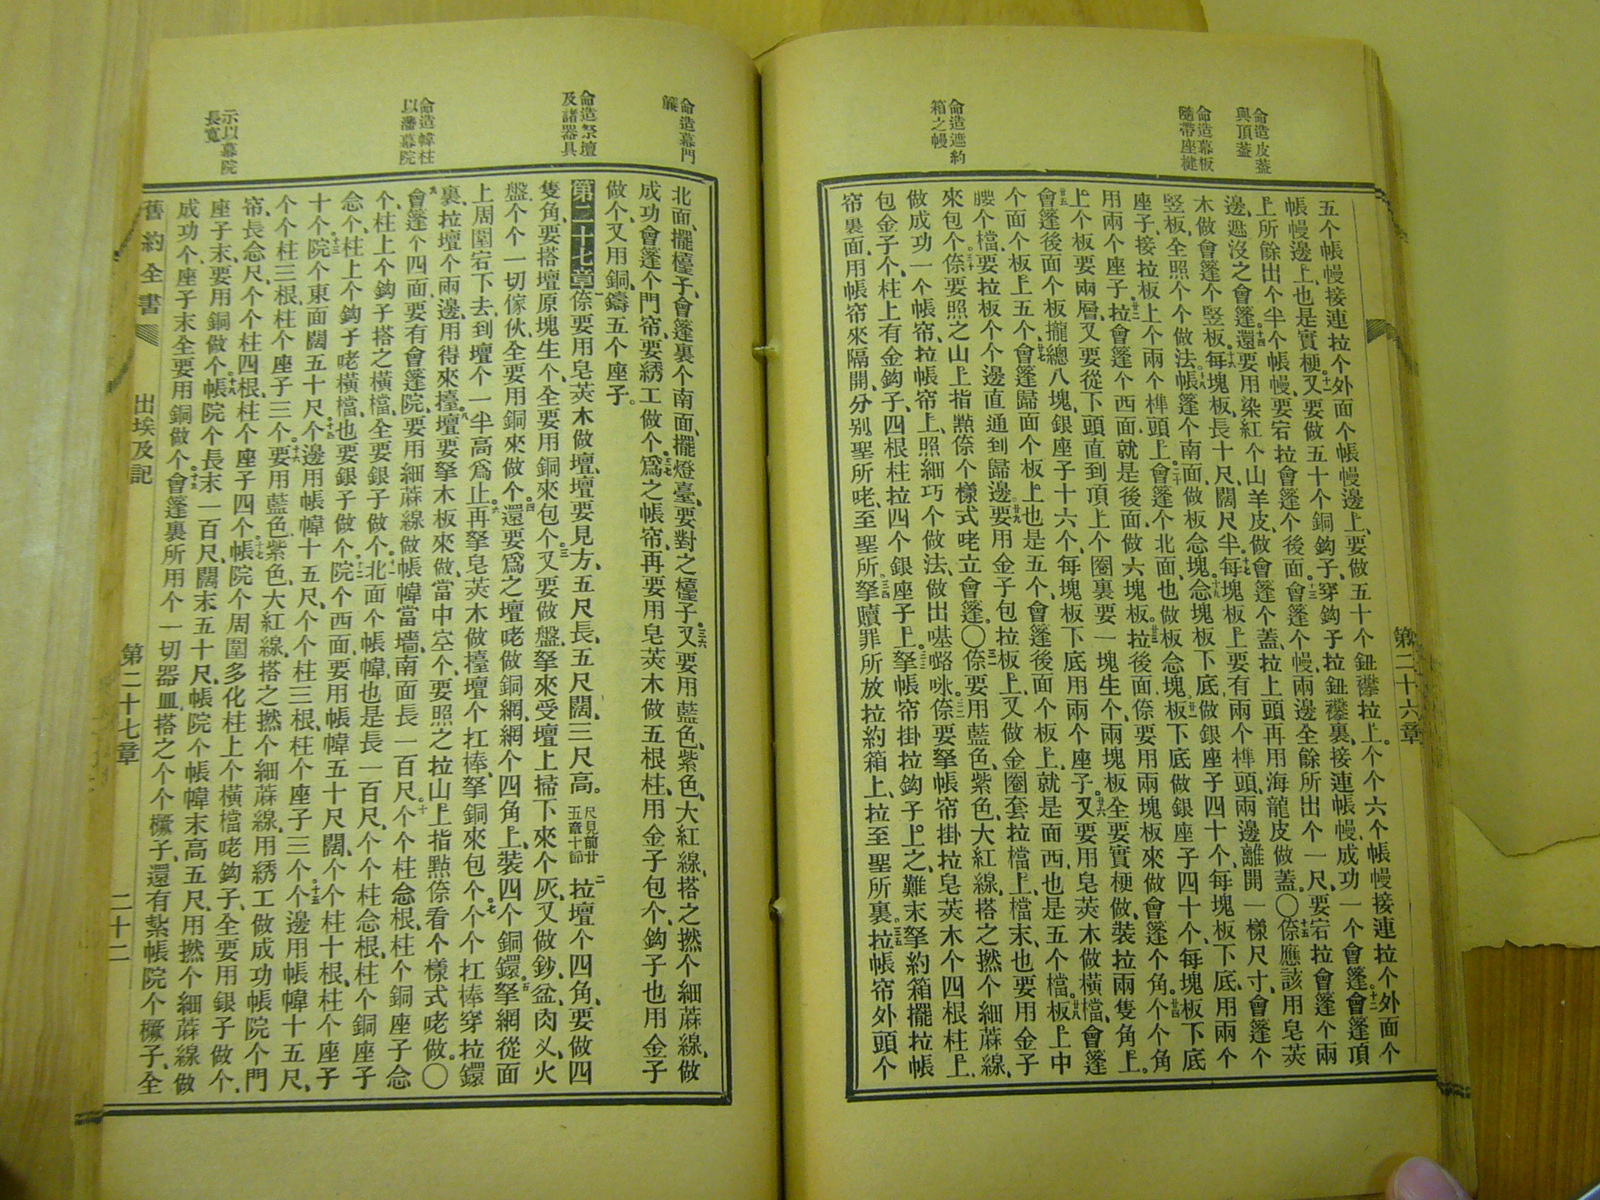 命造皮蓋
與頂蓋
命造幕板
隨帶座楗
命造遮約
箱之幔
第二十六章
五个帳幔接連拉个外面个帳幔邊上、要做五十个鈕襻拉上。个个六个帳幔接連拉个外面个
帳幔邊上、也是實梗。又要做五十个銅鈎子、穿鈎子拉鈕襻裏、接連帳幔、成功一个會篷。會篷頂
上所餘出个半个帳幔、要宕拉會篷个後面。會篷个幔、兩邊全餘所出个一尺、要宕拉會篷个兩
邊、遮沒之會篷。還要用染紅个山羊皮、做會篷个蓋、拉上頭再用海龍皮做蓋。〇倷應該用皂莢
木做會篷个竪板。每塊板、長十尺、闊尺半。每塊板上、要有兩个榫頭、兩邊離開一樣尺寸、會篷个
竪板、全照个个做法。帳篷个南面、做板念塊。念塊板下底、做銀座子四十个、每塊板下底、用兩个
座子、接拉板上个兩个榫頭上。會篷个北面、也做板念塊。板下底做銀座子四十个、每塊板下底
用兩个座子。拉會篷个西面、就是後面、做六塊板。拉後面、倷要用兩塊板來做會篷个角。个个角
上个板、要兩層、又要從下頭直到頂上个圈裏、要一塊生个、兩塊板全要實梗做、裝拉兩隻角上。
會篷後面个板、攏總八塊、銀座子十六个、每塊板下底用兩个座子。又要用皂莢木做橫檔、會篷
个面个板上五个、會篷歸面个板上也是五个、會篷後面个板上、就是面西、也是五个檔。板上中
腰个檔、要拉板个个邊直通到歸邊。要用金子包拉板上、又做金圈套拉檔上、檔末也要用金子
來包个。倷要照之山上指點倷个樣式咾立會篷。〇倷要用藍色、紫色、大紅線、搭之撚个細蔴線、
做成功一个帳帘、拉帳帘上、照細巧个做法、做出𠼻𡀔咪。倷要拏帳帘掛拉皂莢木个四根柱上、
包金子个、柱上有金鈎子、四根柱拉四个銀座子上。拏帳帘掛拉鈎子上之難末、拏約箱擺拉帳
帘裏面、用帳帘來隔開、分別聖所咾至聖所。拏贖罪所放拉約箱上、拉至聖所裏。拉帳帘外頭个
命造幕門
簾
命造祭壇
及諸器具
命造幃柱
以藩幕院
示以幕院
長寬
北面、擺檯子、會篷裏个南面、擺燈臺、要對之檯子。又要用藍色、紫色、大紅線、搭之撚个細蔴線、做
成功會篷个門帘、要綉工做个。爲之帳帘、再要用皂莢木做五根柱、用金子包个、鈎子也用金子
做个、又用銅鑄五个座子。
第二十七章 倷要用皂莢木做壇、壇要見方、五尺長、五尺闊、三尺高。尺見前廿五章十節 拉壇个四角、要做四
隻角、要搭壇原塊生个、全要用銅來包个。又要做盤、拏來受壇上掃下來个灰、又做鈔、盆、肉乂、火
盤、个个一切傢伙、全要用銅來做个。還要爲之壇咾做銅網、網个四角上、裝四个銅鐶。拏網從面
上周圍宕下去、到壇个一半高爲止。再拏皂莢木做擡壇个扛棒、拏銅來包个。个个扛棒穿拉鐶
裏、拉壇个兩邊、用得來擡。壇要拏木板來做、當中空个、要照之拉山上指點倷看个樣式咾做。〇
會篷个四面、要有會篷院、要用細蔴線做帳幃當墻、南面長一百尺。个个柱念根、柱个銅座子念
个、柱上个鈎子搭之橫檔、全要銀子做个。北面个帳幃、也是長一百尺、个个柱念根、柱个銅座子
念个、柱上个鈎子咾橫檔、也要銀子做个。院个西面、要用帳幃五十尺闊、个个柱十根、柱个座子
十个。院个東面闊五十尺个。邊用帳幃十五尺、个个柱三根、柱个座子三个。个邊用帳幃十五尺、
个个柱三根、柱个座子三个。要用藍色、紫色、大紅線、搭之撚个細蔴線、用綉工做成功帳院个門
帘、長念尺、个个柱四根、柱个座子四个。帳院个周圍多化柱上个橫檔咾鈎子、全要用銀子做个、
座子末、要用銅做个。帳院个長末一百尺、闊末五十尺、帳院个帳幃末高五尺、用撚个細蔴線做
成功个、座子末全要用銅做个。會篷裏所用个一切器皿、搭之个个橛子、還有紮帳院个橛子、全
舊約全書
出埃及記
第二十七章
二十二